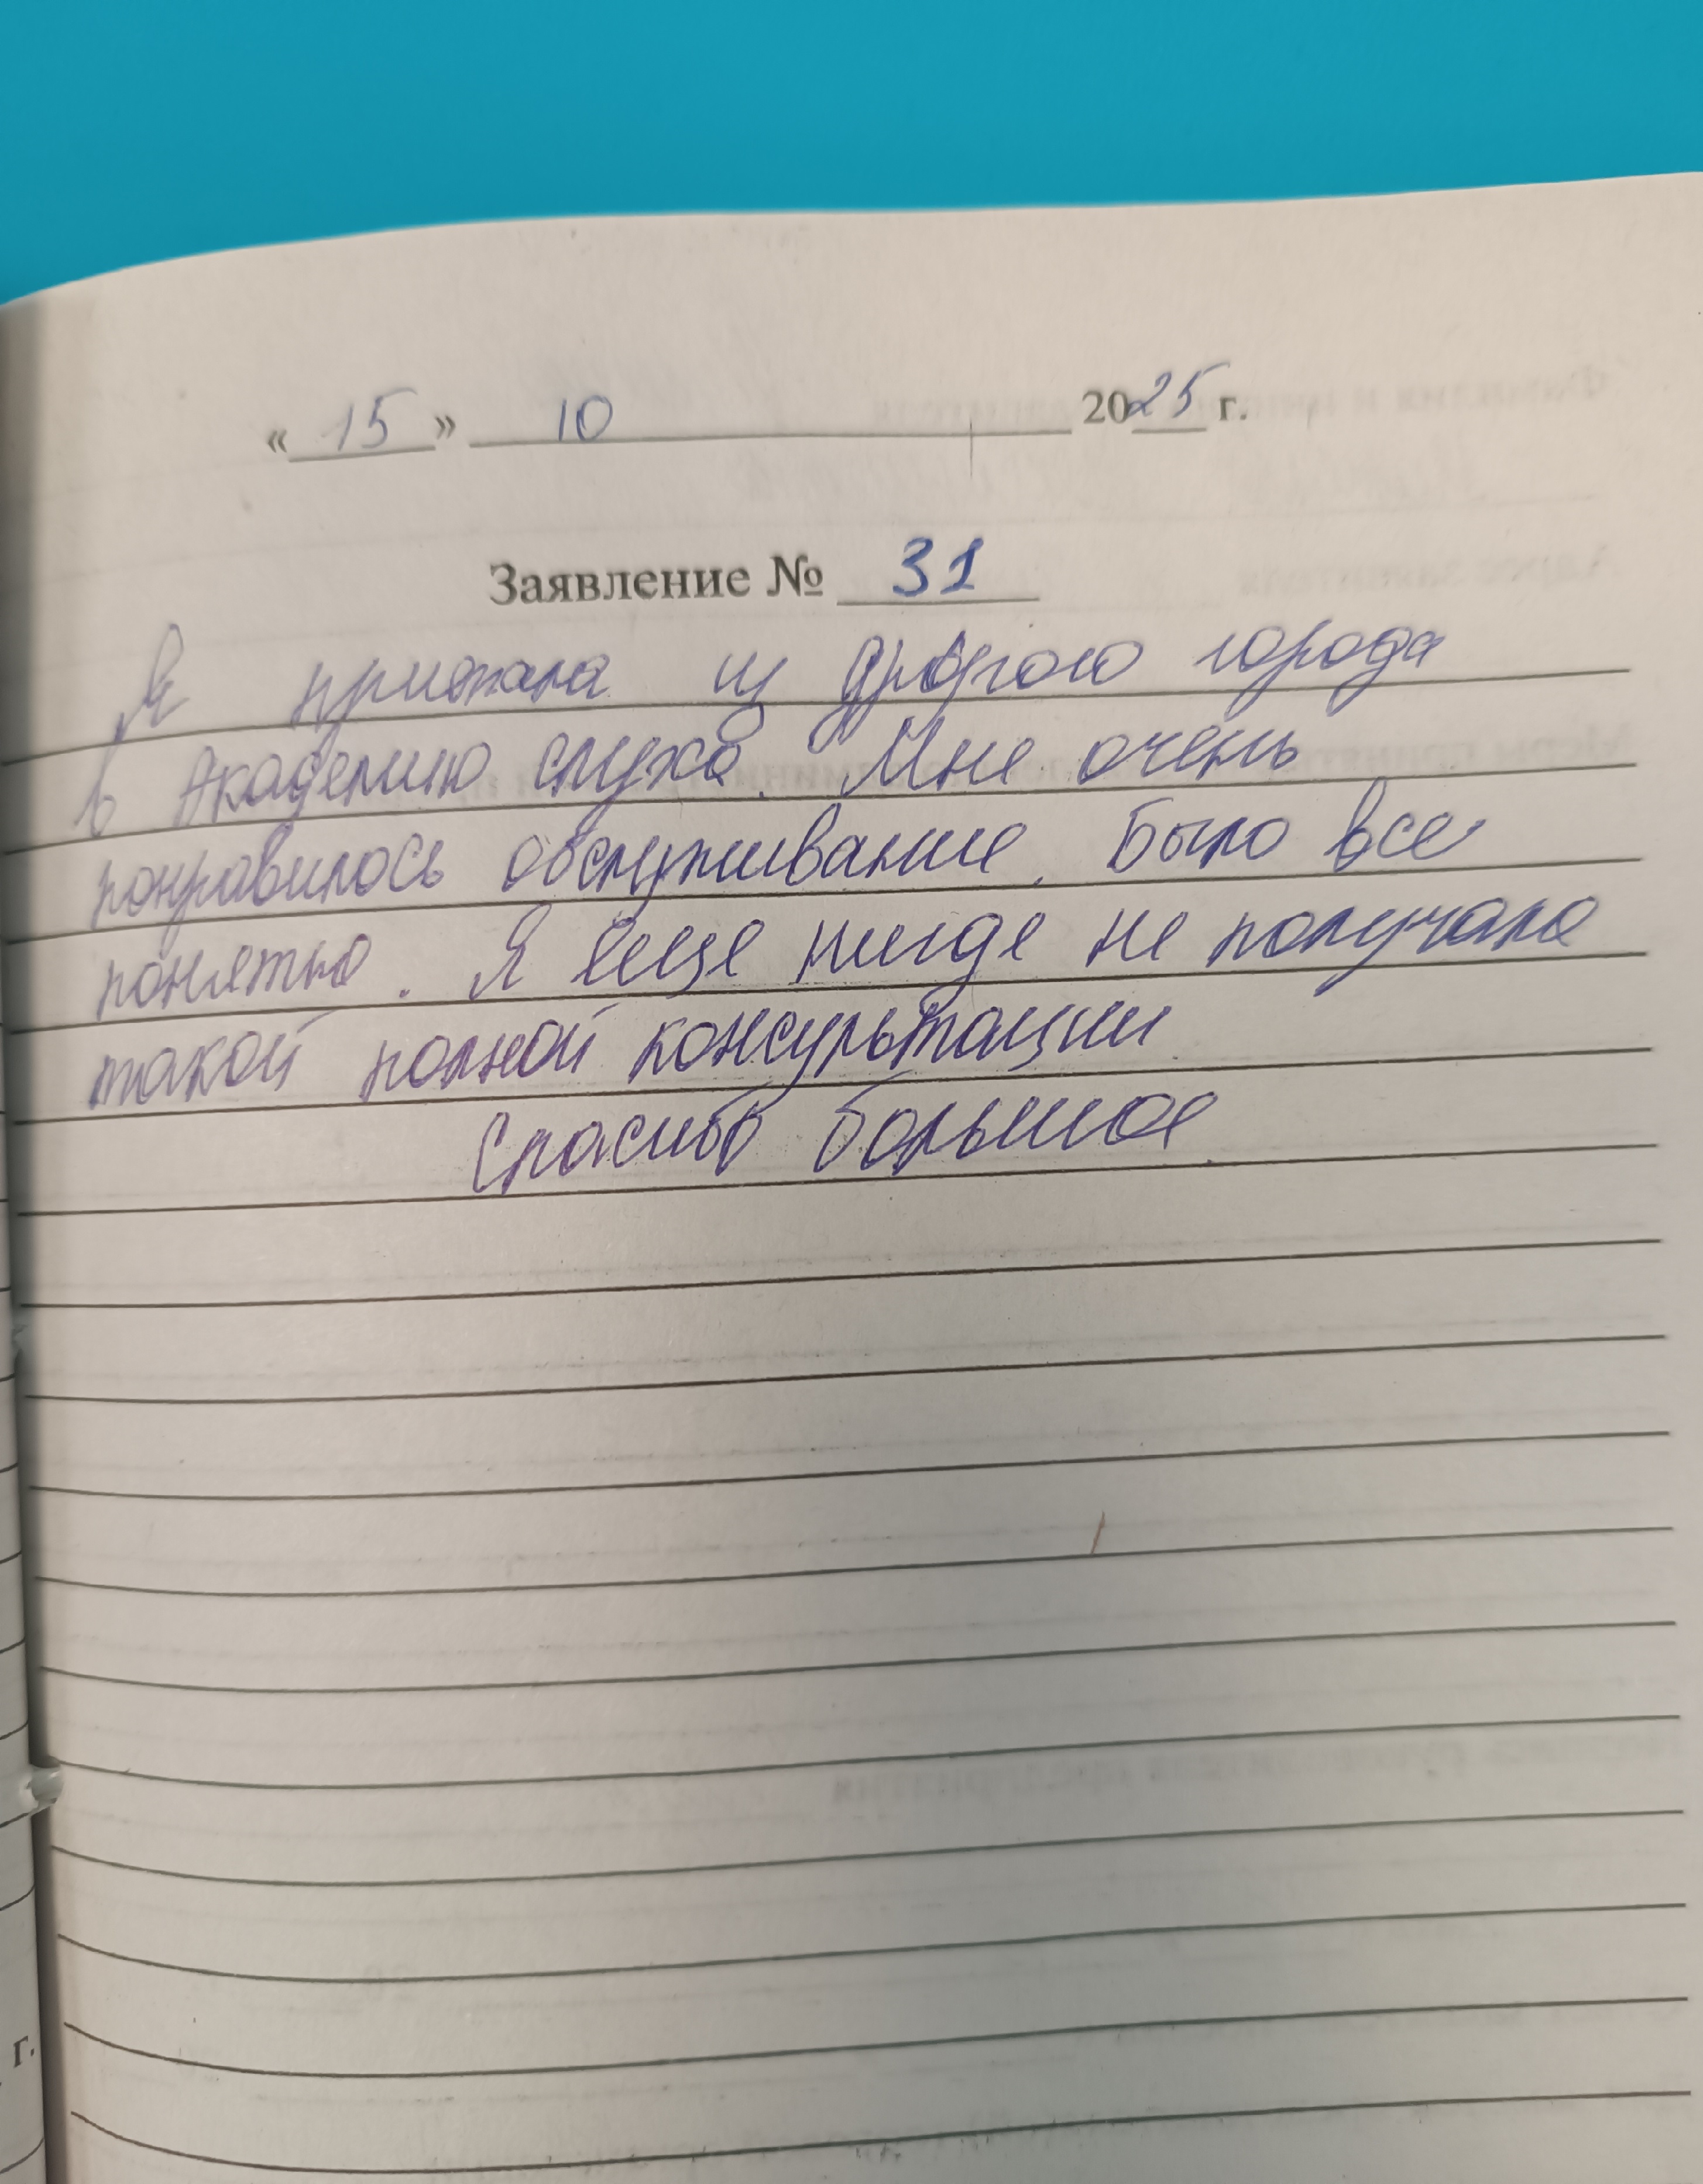 «15» 10 2025 г.
Заявление № 31
Я приехала из другого города
в Академию слуха. Мне очень
понравилось обслуживание. Было все
понятно. Я еще нигде не получала
такой полной консультации
Спасибо большое
г.